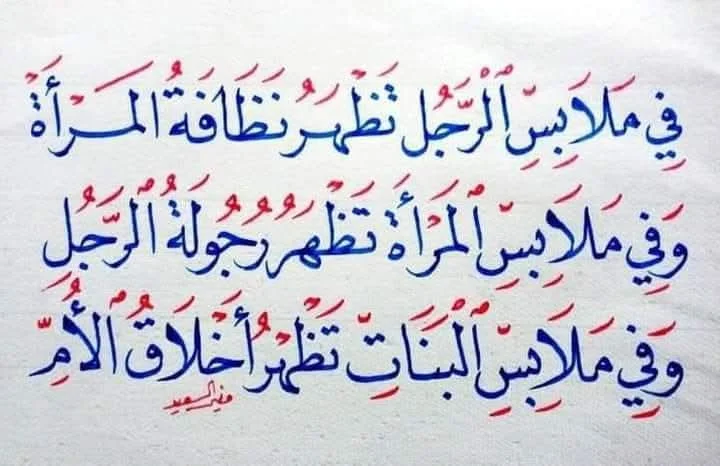 فِي مَلَابِسِ ٱلْرَّجُل تَظْهَرُ نَظَافَةُ المَرْأَة
وَفِي مَلَابِسِ ٱلمَرْأَة تَظْهَرُ رُجُولَةُ الرَّجُل
وَفِي مَلَابِسِ ٱلْبَنَاتِ تَظْهَرُ أَخْلَاقُ الأُمِّ
منير السعيد